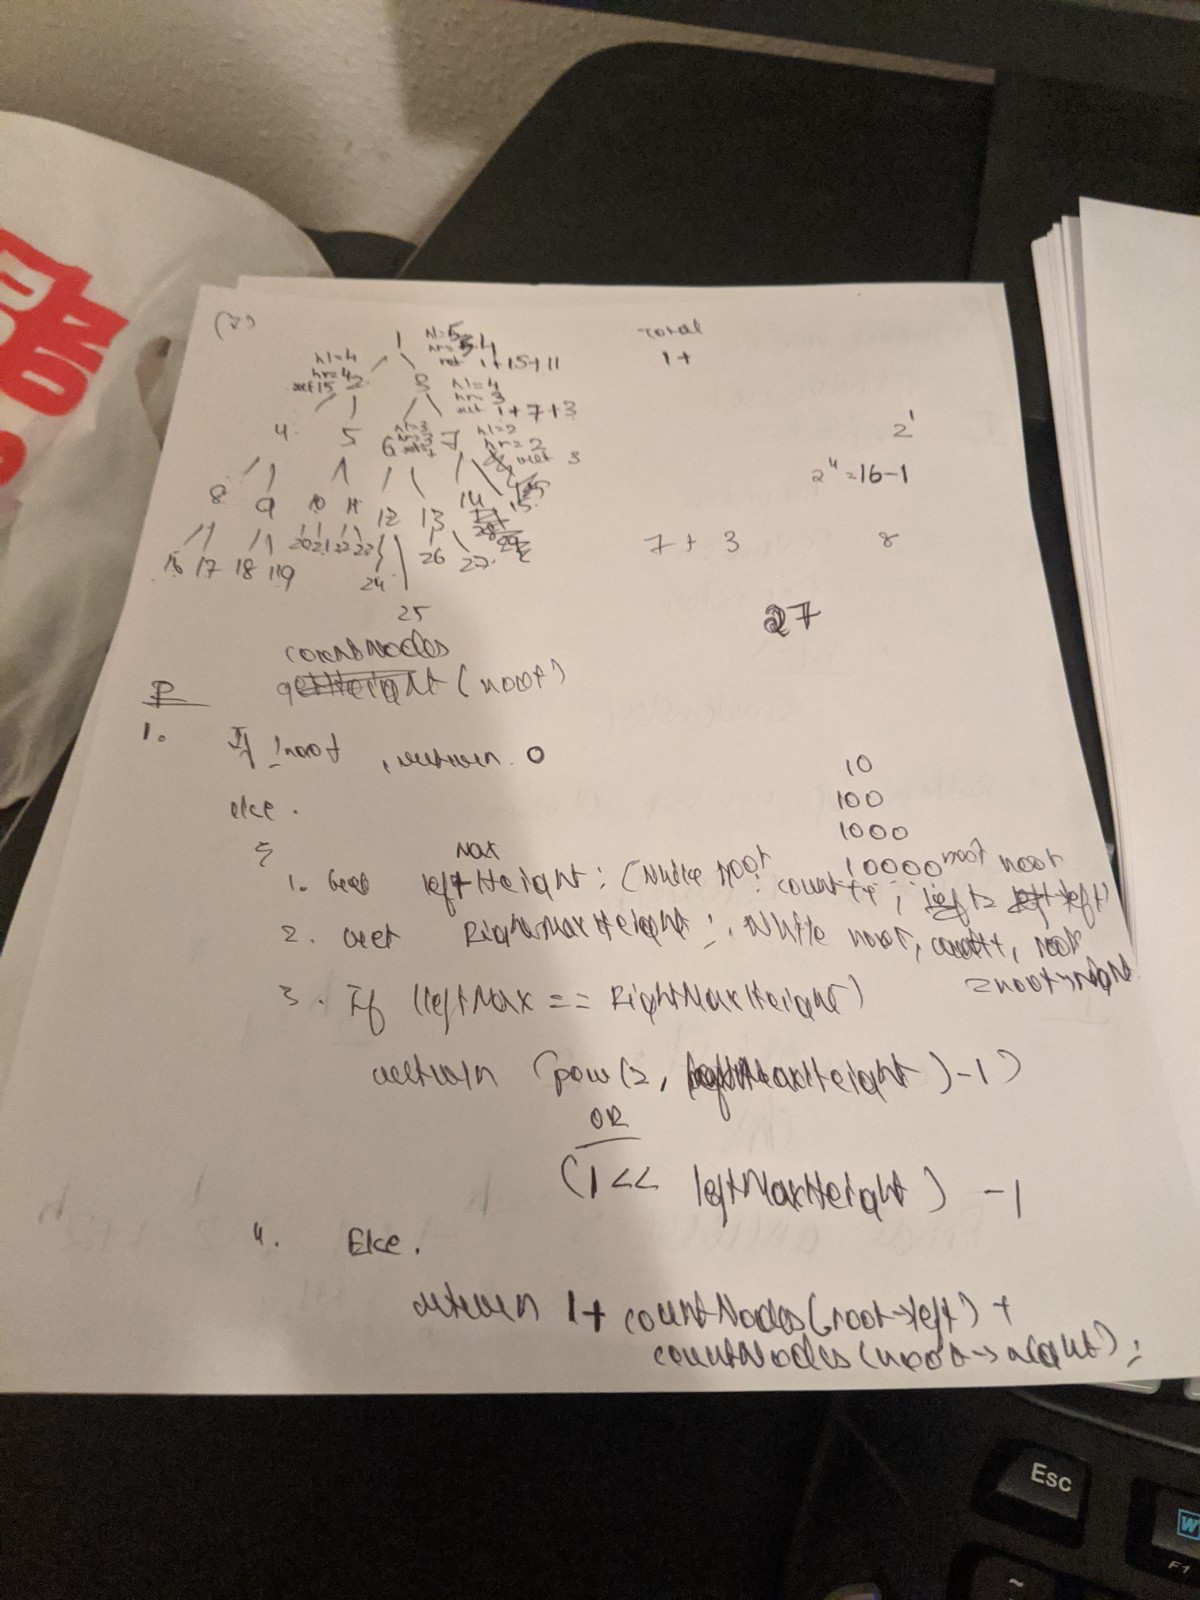 (7)
1 hl=5
hr=4
ret 1+15+11
Total
1+
hl=4
hr=4
ret 15 2
3 hl=4
hr=3
ret 1+7+3
4 5 6 hl=3
hr=3
7 hl=2
hr=2
ret 3
2^1
2^4=16-1
8 9 10 11 12 13 14 15
7+3 8
16 17 18 19 20 21 22 23 24 26 27
25
27
countNodes
getHeight (root)
P
1. If !root , return 0
else.
{
10
100
1000
10000
Max
1. Get leftHeight: (While root count++; root = root left)
2. Get RightMaxHeight: While root, count++, root
=root->right
3. If (leftMax == RightMaxHeight)
return (pow(2, leftMaxHeight)-1)
OR
(1<< leftMaxHeight) -1
4. Else.
return 1+ countNodes(root->left) +
countNodes(root->right);
Esc
W
F1
~